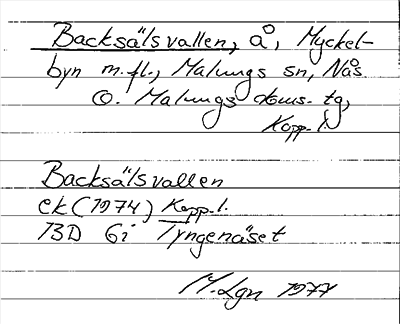 Backsälsvallen, å, Myckel-
byn m.fl., Malungs sn, Nås
o. Malungs doms. tg,
Kopp. l.
Backsälsvallen
ek (1974) Kopp. l.
13D 6i Tyngenäset
M. Lgn 1977